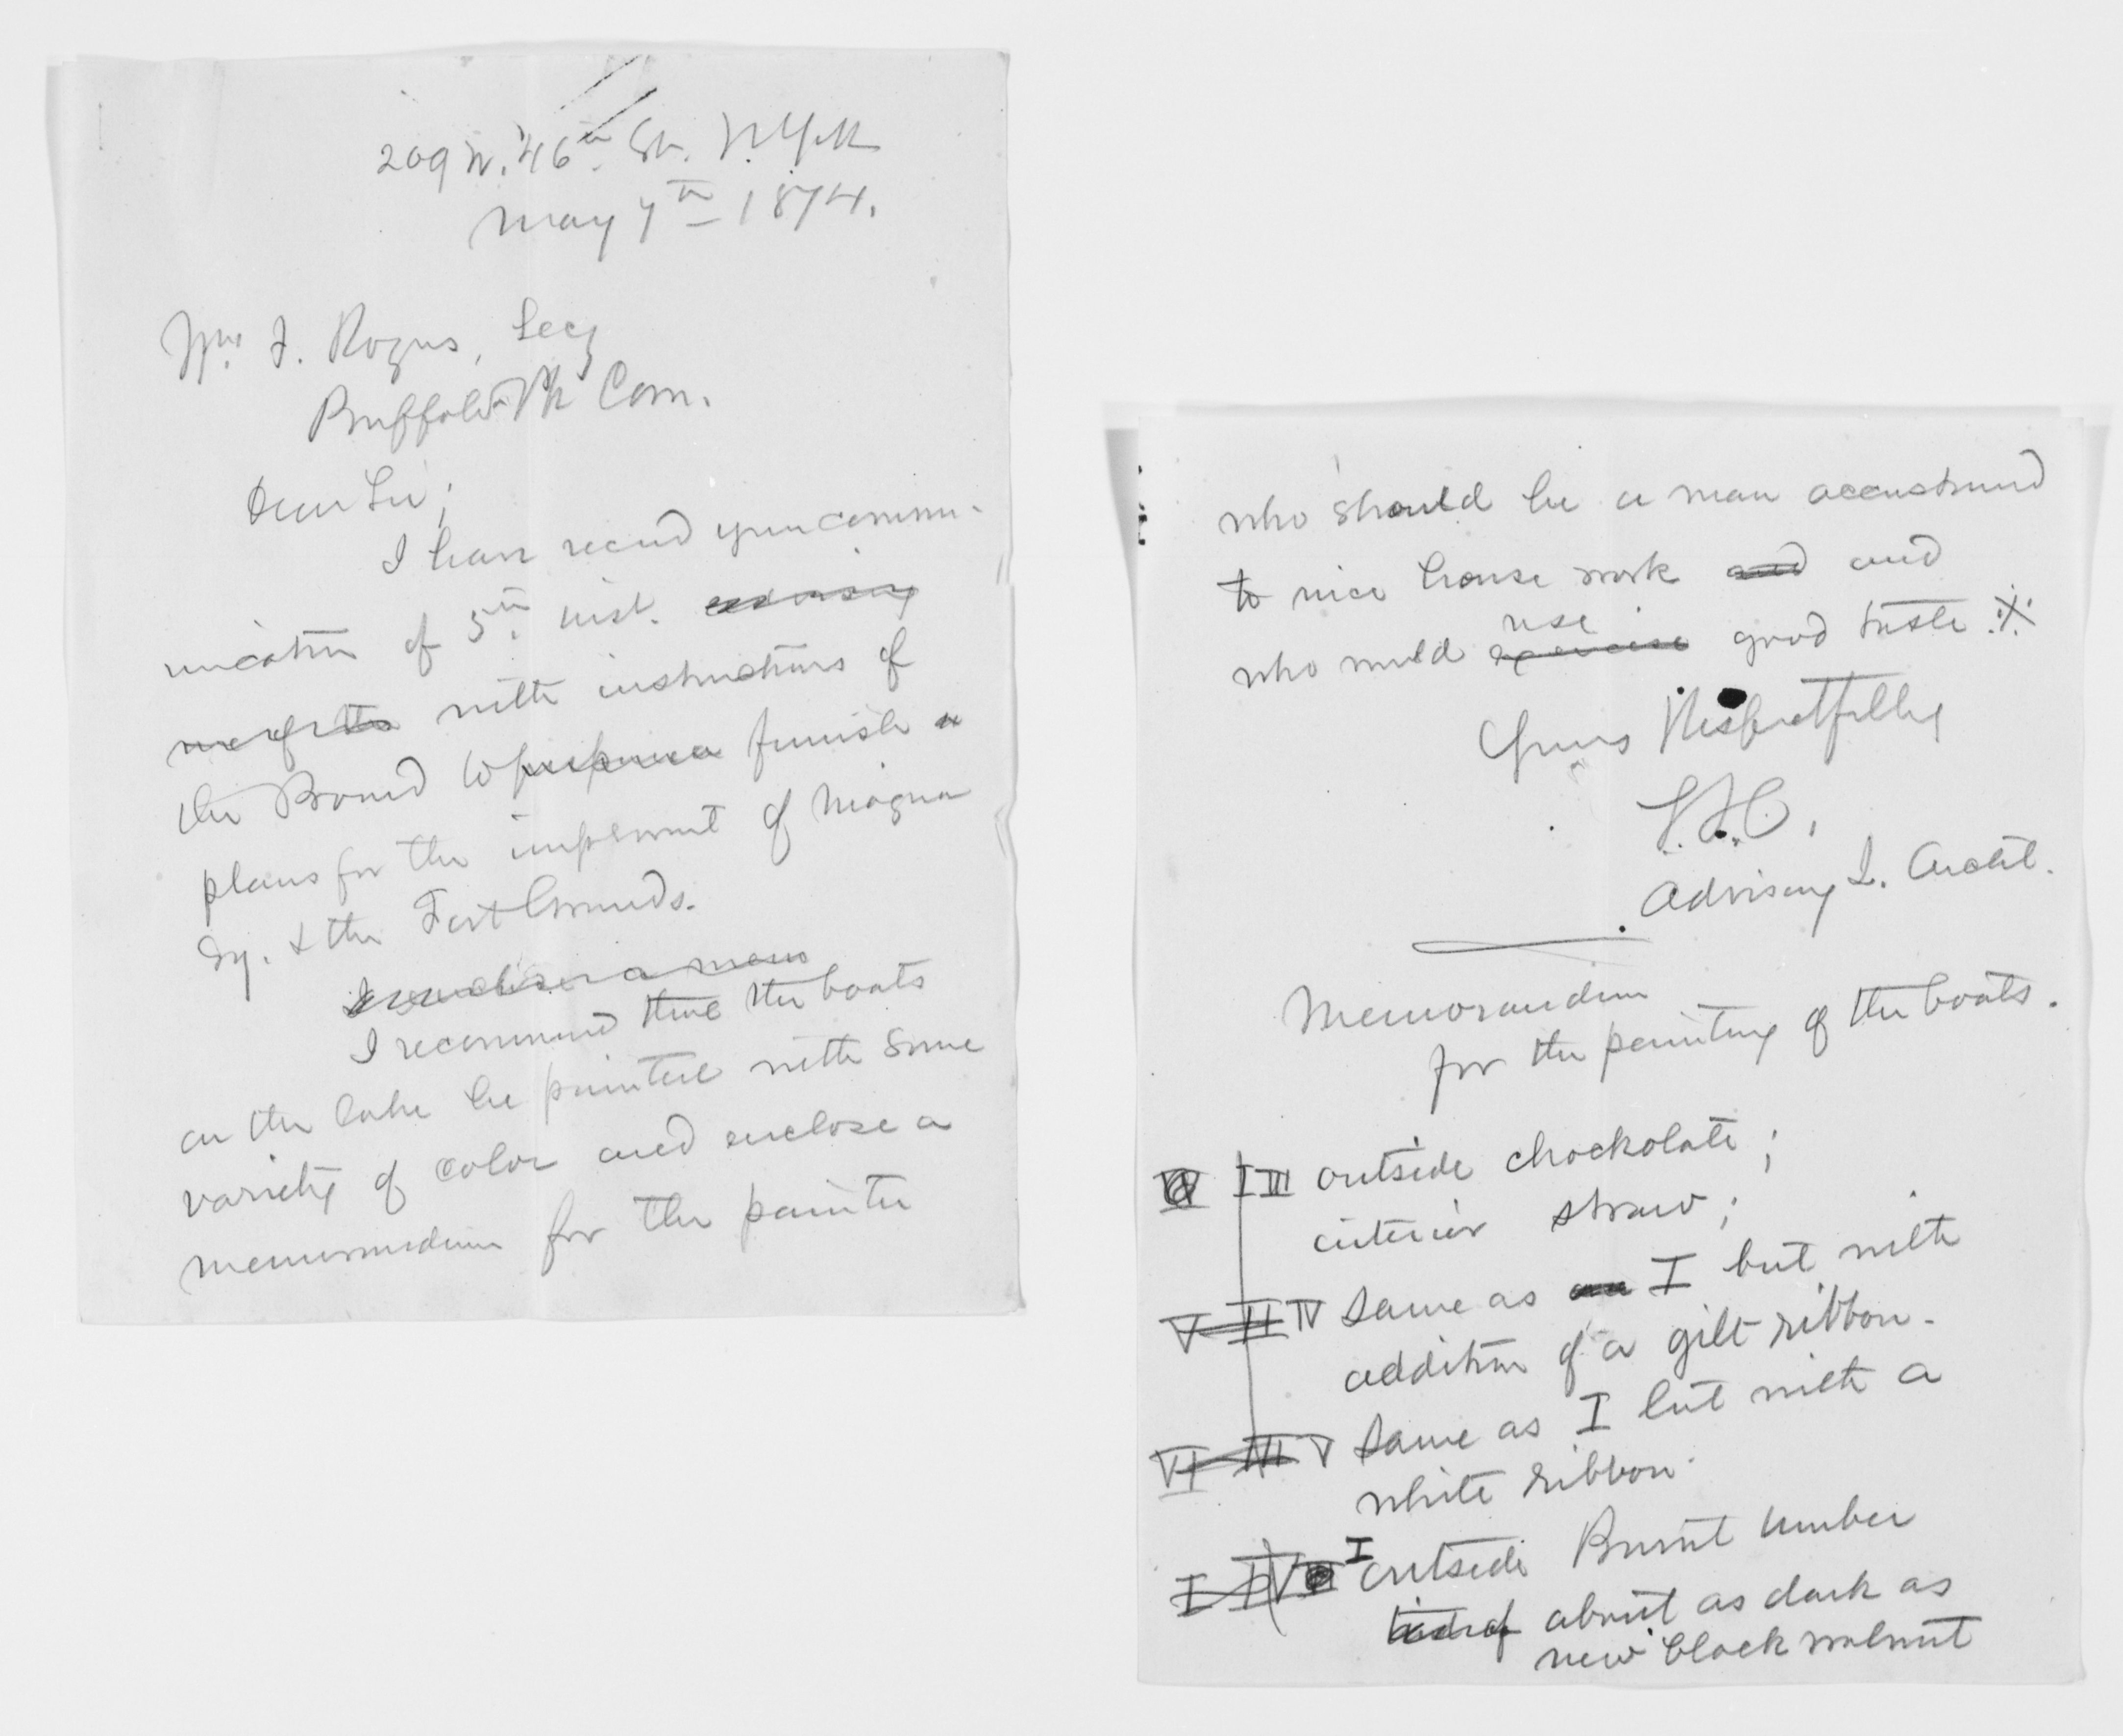 209 W. 46th St. N. York
May 7th 1874.
Wm. F. Rogers, Secy
Buffalo Pk Com.
Dear Sir;
I have recvd your commu-
nication of 5th inst.
with instructions of
the Board to furnish
plans for the improvmt of Niagra
Sq. & the Fort Grounds.
I recommend that the boats
on the lake be painted with some
variety of color and enclose a
memorandum for the painter
who should be a man accustomed
to nice house work and and
use
who would exercise good taste
Yours Respectfully
F.L.O.
Advisory L. Archt.
Memorandum
for the painting of the boats.
III outside chockolate;
interior straw;
V II IV Same as I but with
addition of a gilt ribbon.
VI III V Same as I but with a
white ribbon.
I
I IV outside Burnt Umber
about as dark as
new black walnut